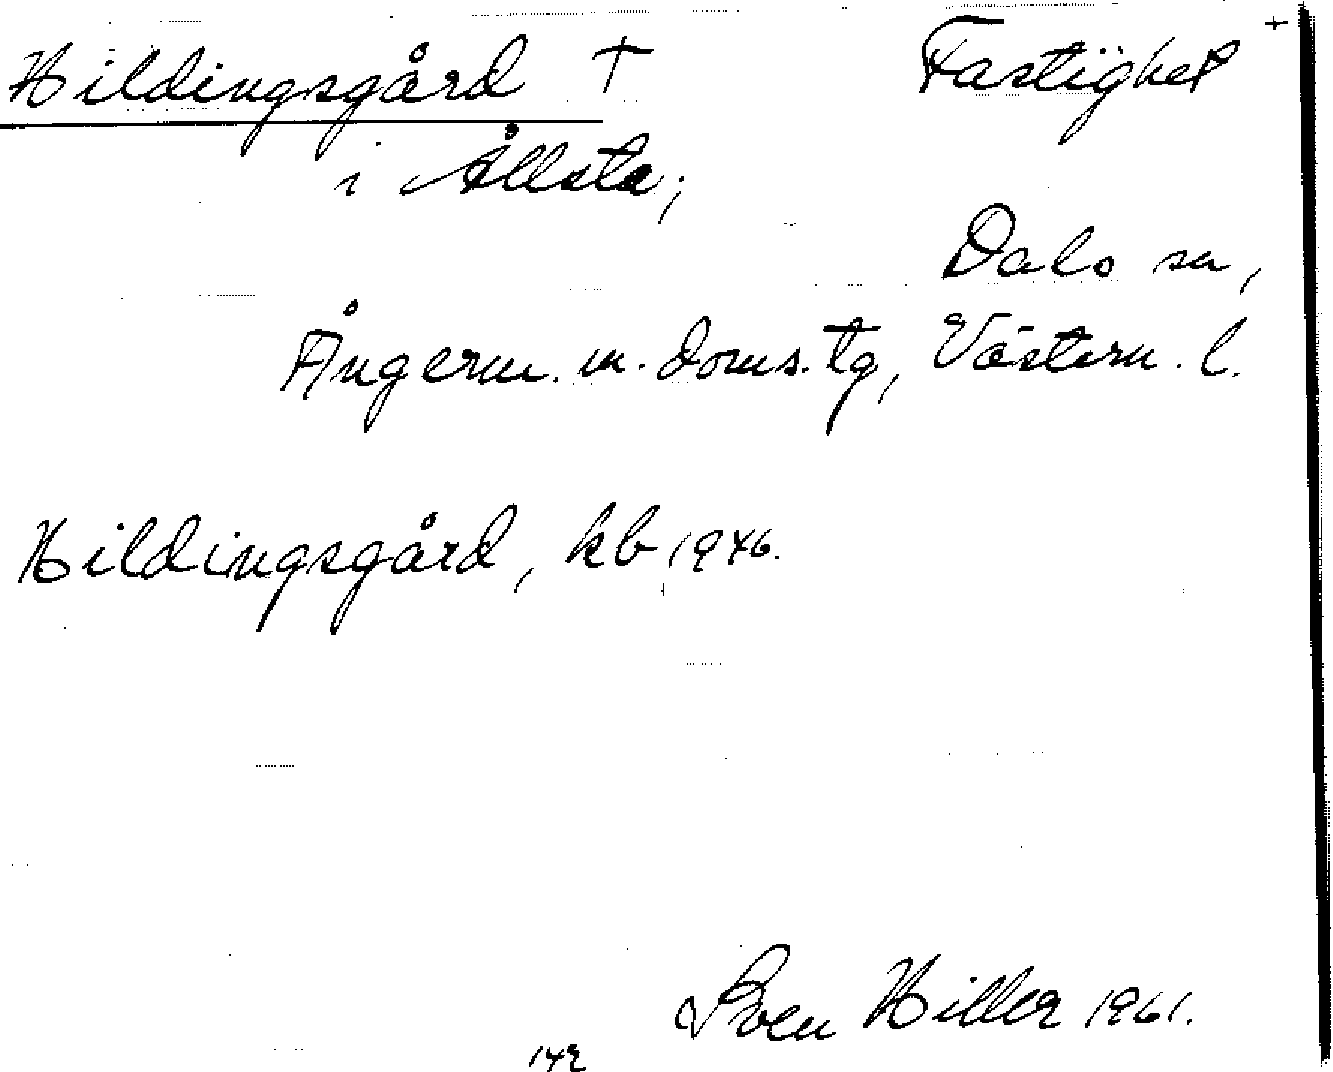 Hildingsgård † Fastighet +
i Ållsta;
Dals sn,
Ångerm. m. doms. tg, Västern. l.
Hildingsgård, kb 1946.
Sven Hiller 1961.
142